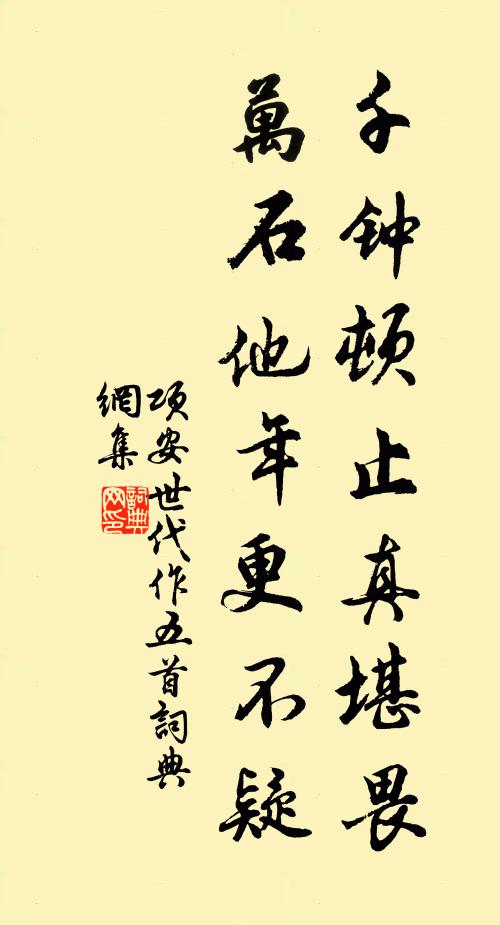 千钟頓止真堪畏
萬石他年更不疑
項安世代作五首詞典
網集
詞典
网印